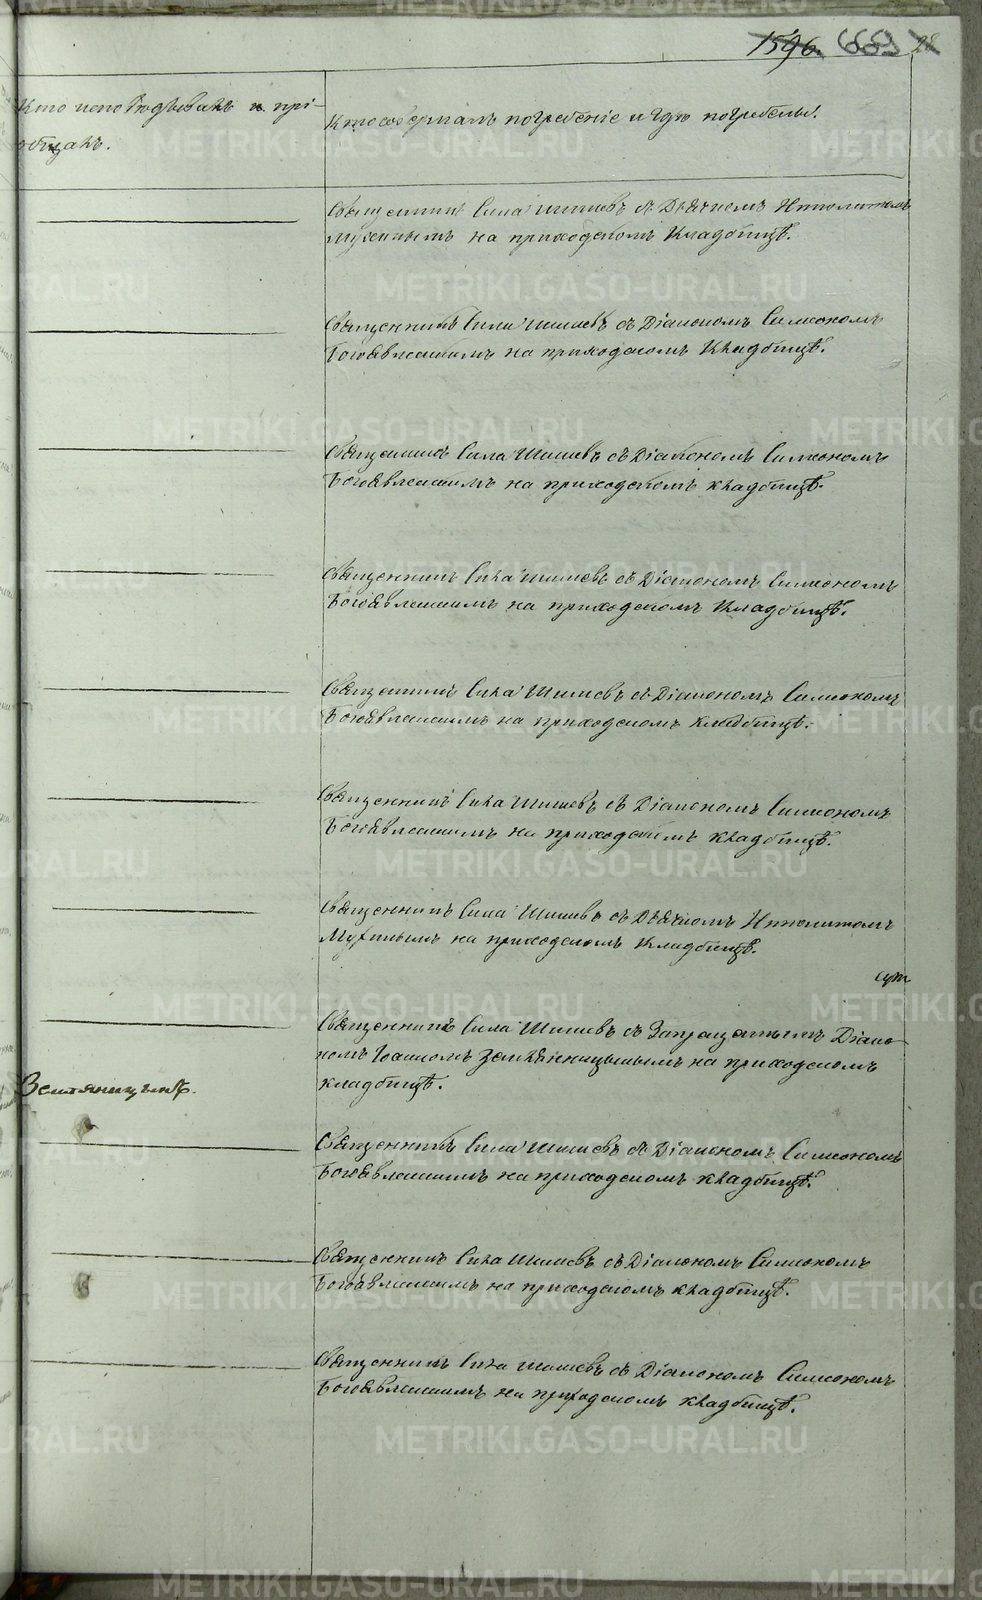 1596. 669
Кто исповѣдывалъ и прі-
общалъ.
Кто совершалъ погребеніе и гдѣ погребены.
Священникъ Сила Шишевъ съ Дьячкомъ Ипполитомъ
на приходскомъ Кладбищѣ.
Священникъ Сила Шишевъ съ Діакономъ Симеономъ
Богоявленскимъ на приходскомъ Кладбищѣ.
Священникъ Сила Шишевъ съ Діакономъ Симеономъ
Богоявленскимъ на приходскомъ кладбищѣ.
Священникъ Сила Шишевъ съ Діакономъ Симеономъ
Богоявленскимъ на приходскомъ Кладбищѣ.
Священникъ Сила Шишевъ съ Діакономъ Симеономъ
Богоявленскимъ на приходскомъ кладбищѣ.
Священникъ Сила Шишевъ съ Діакономъ Симеономъ
Богоявленскимъ на приходскомъ кладбищѣ.
Священникъ Сила Шишевъ съ Дьячкомъ Ипполитомъ
на приходскомъ Кладбищѣ.
Священникъ Сила Шишевъ съ Запрещеннымъ Діако-
номъ Іоанномъ Земляницынымъ на приходскомъ
кладбищѣ.
Земляницынъ.
Священникъ Сила Шишевъ съ Діакономъ Симеономъ
Богоявленскимъ на приходскомъ кладбищѣ.
Священникъ Сила Шишевъ съ Діакономъ Симеономъ
Богоявленскимъ на приходскомъ кладбищѣ.
Священникъ Сила Шишевъ съ Діакономъ Симеономъ
Богоявленскимъ на приходскомъ кладбищѣ.
METRIKI.GASO-URAL.RU